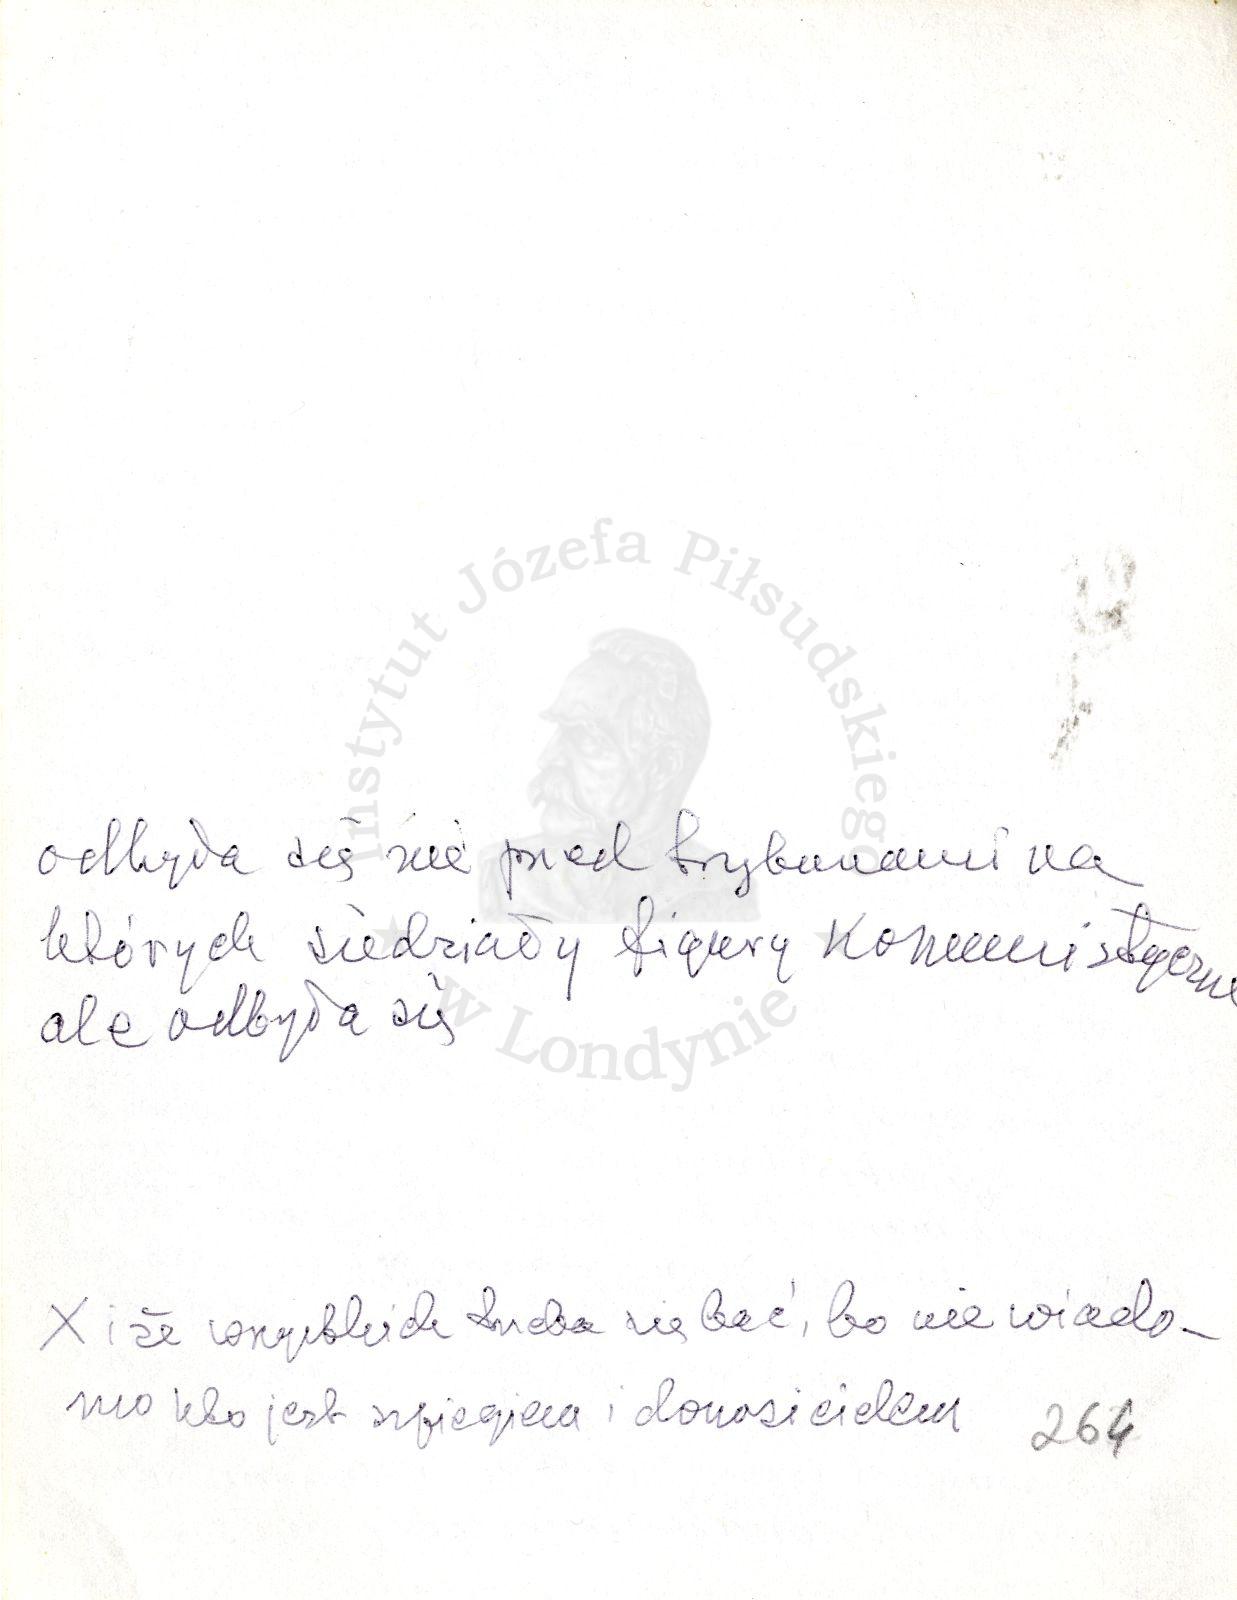 Instytut Józefa Piłsudskiego
w Londynie
odbyła się nie przed trybunami na
których siedziały figury komunistyczne
ale odbyła się
X i że wszystkich trzeba się bać, bo nie wiado-
mo kto jest szpiegiem i donosicielem
264